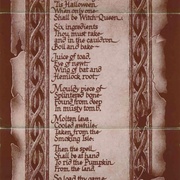 'Tis Halloween,
When only one
Shall be Witch Queen.
Six ingredients
Thou must take
and in the cauldron
Boil and bake ~
Juice of toad,
Eye of newt,
Wing of bat and
Hemlock root;
Mouldy piece of
Splintered bone
Found from deep
in musty tomb,
Molten lava,
Cooled awhile;
Taken from the
Smoking Isle.
Then the spell
Shall be at hand
To rid the Pumpkin
From the land.